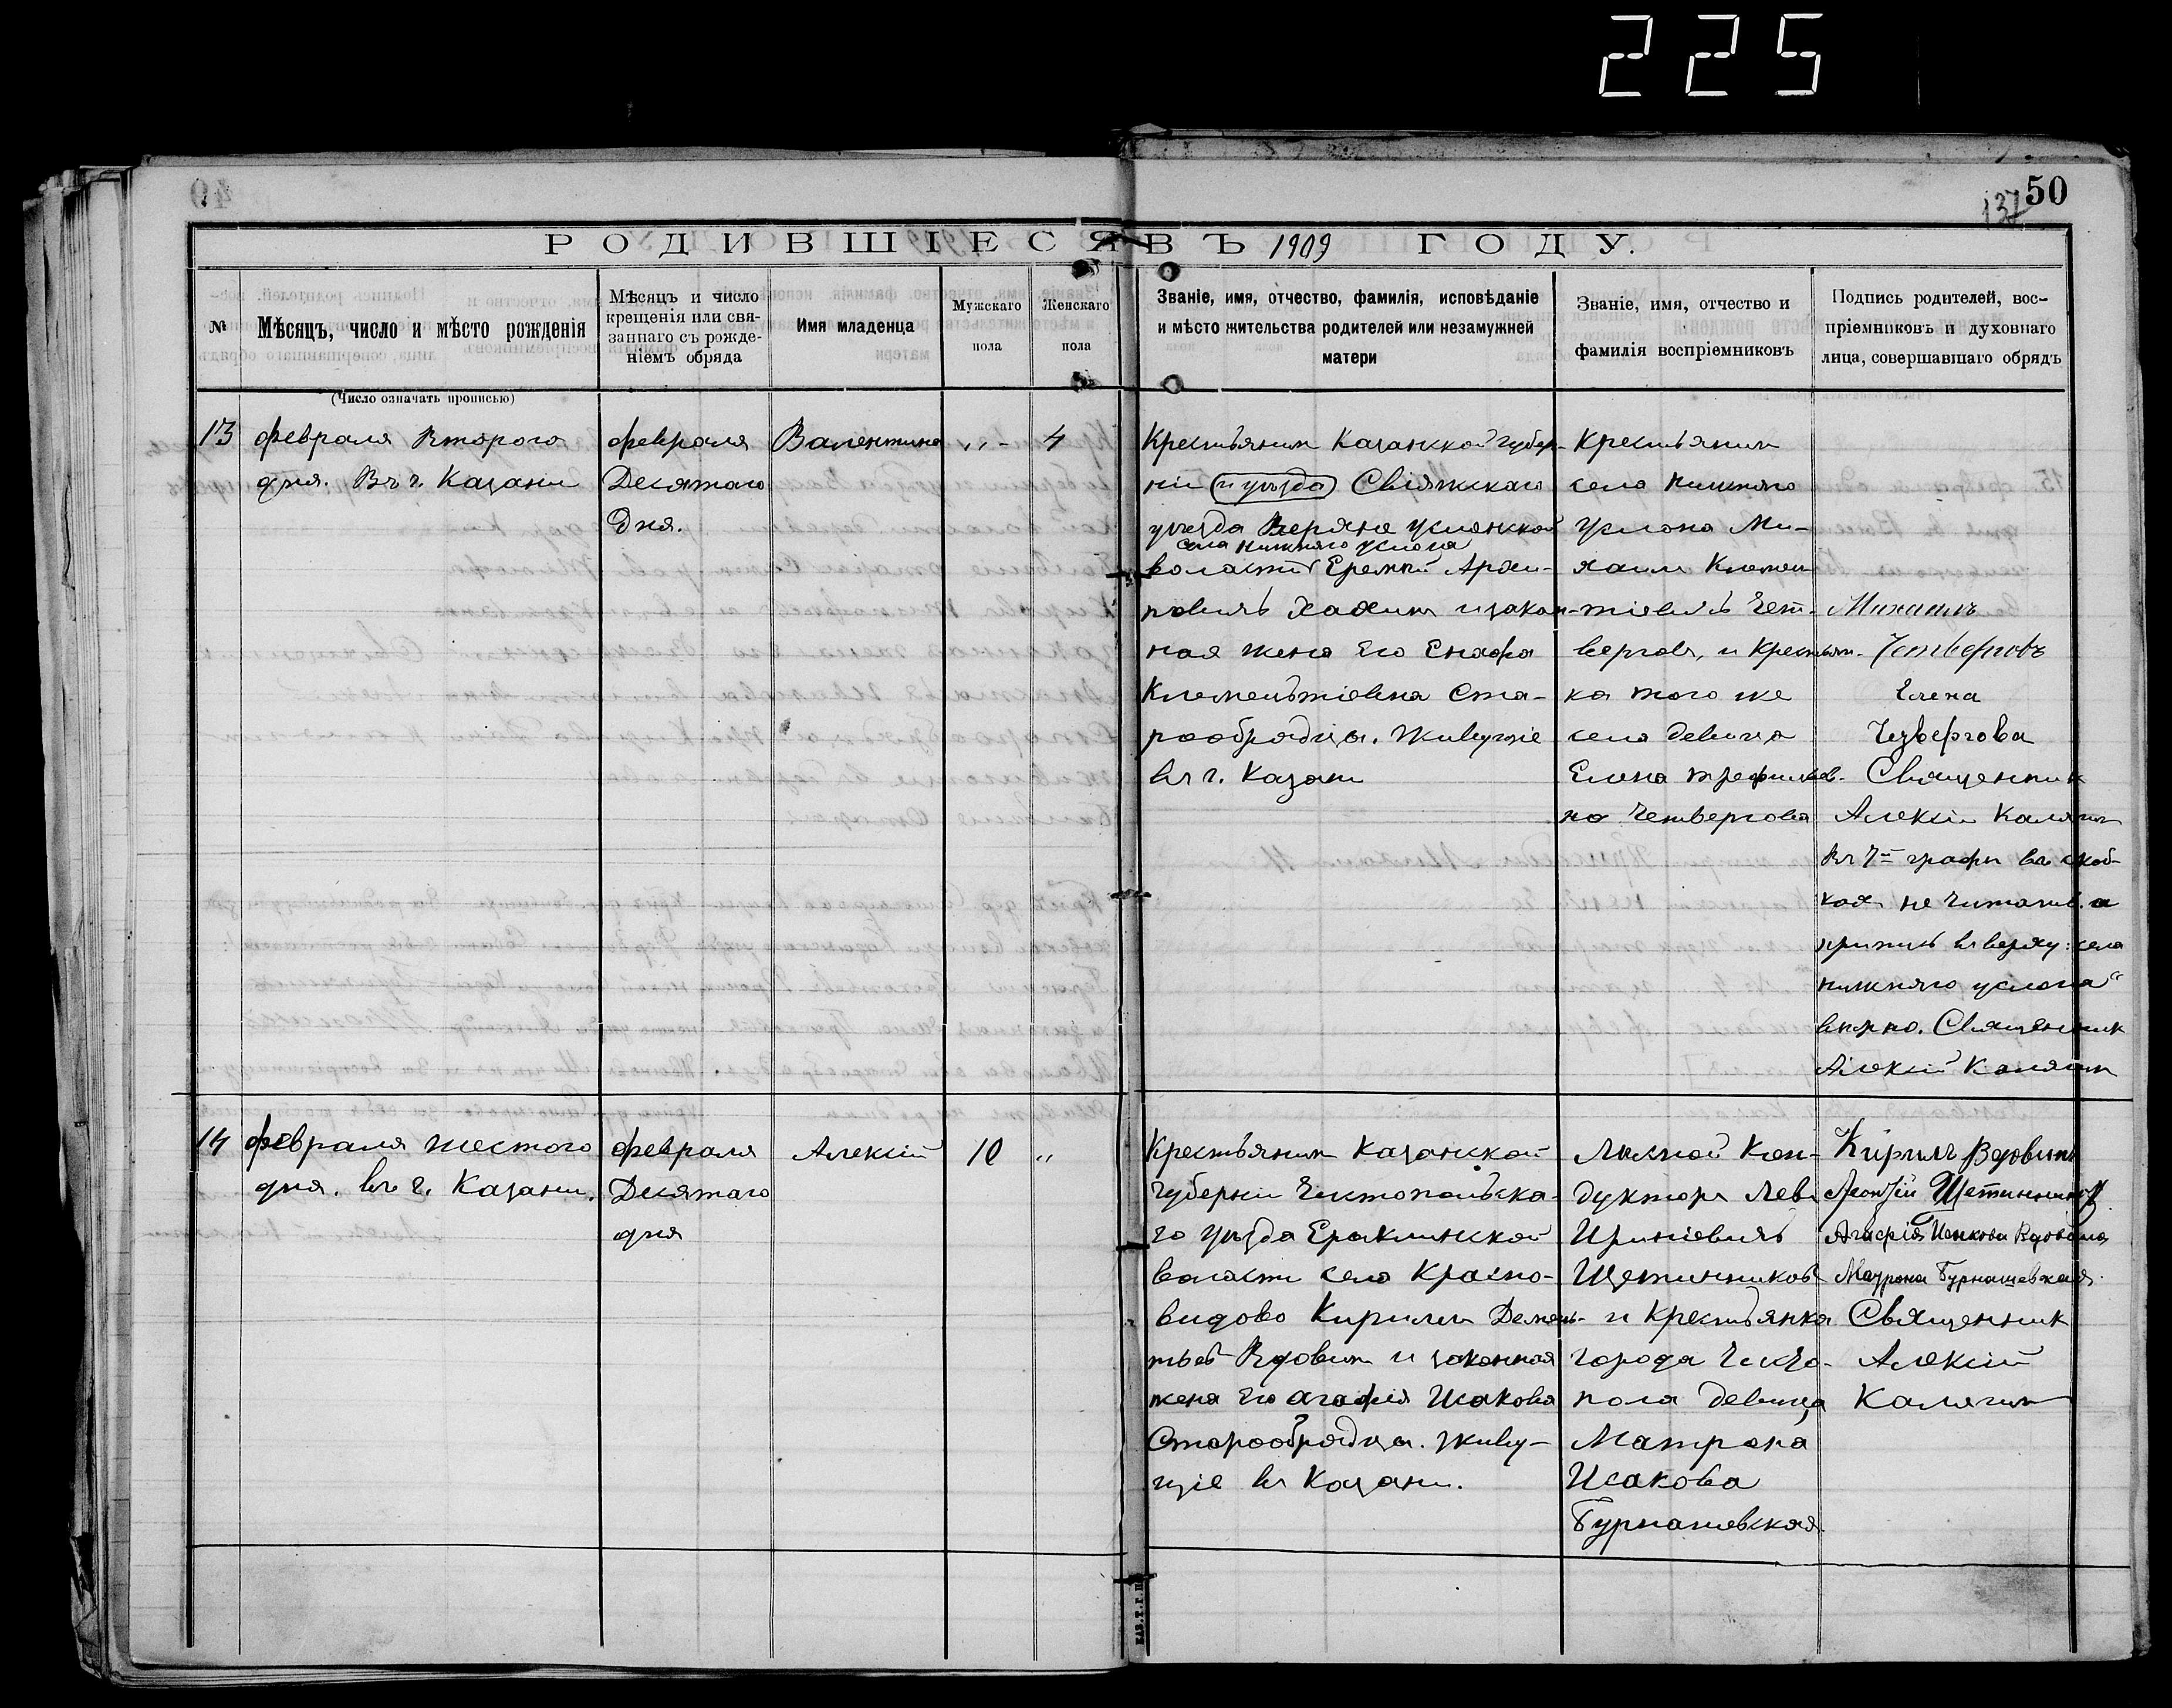 225
50
137
РОДИВШІЕСЯ ВЪ 1909 ГОДУ.
№
Мѣсяцъ, число и мѣсто рожденія
(Число означать прописью)
Мѣсяцъ и число
крещенія или свя-
заннаго съ рожде-
ніемъ обряда
Имя младенца
Мужскаго
пола
Женскаго
пола
Званіе, имя, отчество, фамилія, исповѣданіе
и мѣсто жительства родителей или незамужней
матери
Званіе, имя, отчество и
фамилія воспріемниковъ
Подпись родителей, вос-
пріемниковъ и духовнаго
лица, совершавшаго обрядъ
13
февраля Второго
дня. Въ г. Казани
февраля
Десятаго
Дня.
Валентина
„ -
4
Крестьянин Казанской губер-
ніи (и уѣзда) Свіяжскаго
уѣзда Верхне Услонской
села нижняго услона
воласти Еремѣй Архи-
повичь Хахин и закон-
ная жена Его Енафа
Клементіевна Ста-
рообрядцы. Живущіе
въ г. Казани
Крестьянин
села нижняго
Услона Ми-
хаил Клемен
тіевичь Чет-
вергов, и Крестьян-
ка того же
села девица
Елена Трефилов-
на Четвергова
Михаилъ
Четверговъ
Елена
Чтвергова
Священник
Алексій Калягин
Въ 7й графѣ въ скоб-
ках не читать. а
припись вверху: села
нижняго услона"
вѣрно. Священник
Алексій Калягин
14
февраля шестого
дня. въ г. Казани.
февраля
Десятаго
дня
Алексій
10
„
Крестьянин Казанской
Губерніи Чистопольска-
го уѣзда Ерыклинской
воласти село Красно-
видово Кирилл Демень-
тьев Вдовин и законная
жена Его Агафія Исакова
Старообрядцы. Живу-
щіе въ Казани.
Лисной Кон-
дуктор Лев
Щетинников
и Крестьянка
города Чисто-
поля девица
Матрона
Исакова
Бурнашевская
Кирилъ Вдовинъ
Щетинников
Агафія Исакова Вдовина
Матрона Бурнашевская.
Священник
Алексій
Калягин
КАЗ. Т. Г. П.